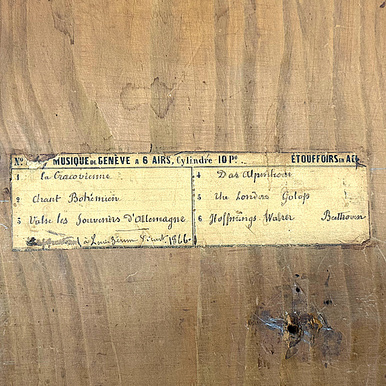 No MUSIQUE DE GENÈVE A 6 AIRS, Cylindre 10 Pce ÉTOUFFOIRS EN ACI
1 La Cracovienne
2 Chant Bohémien
3 Valse les Souvenirs d'Allemagne
1866
4 Das Alpenhorn
5 Un Londres Galop
6 Hoffnungs Walzer Beethoven